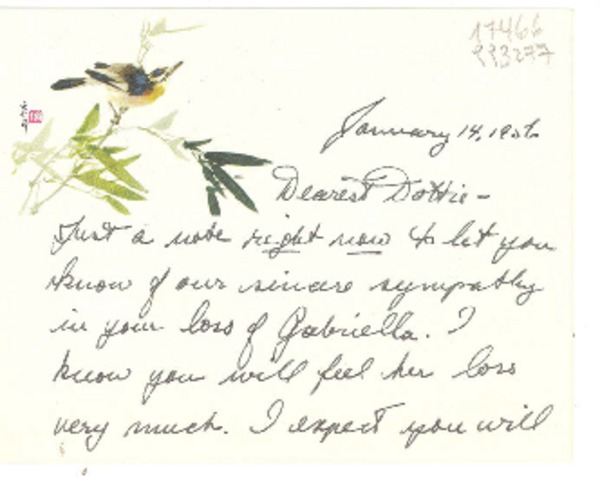 17466
993277
January 14, 1956
Dearest Dottie -
Just a note right now to let you
know of our sincere sympathy
in your loss of Gabriella. I
know you will feel her loss
very much. I expect you will